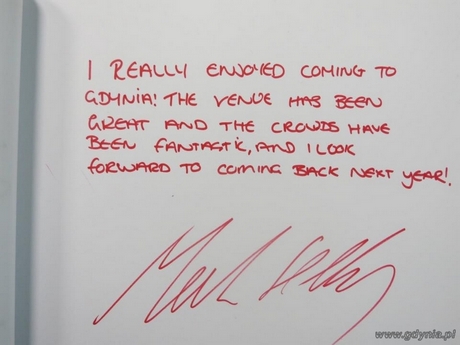 I REALLY ENJOYED COMING TO
GDYNIA! THE VENUE HAS BEEN
GREAT AND THE CROWDS HAVE
BEEN FANTASTIC, AND I LOOK
FORWARD TO COMING BACK NEXT YEAR!
Mark Selby
www.gdynia.pl